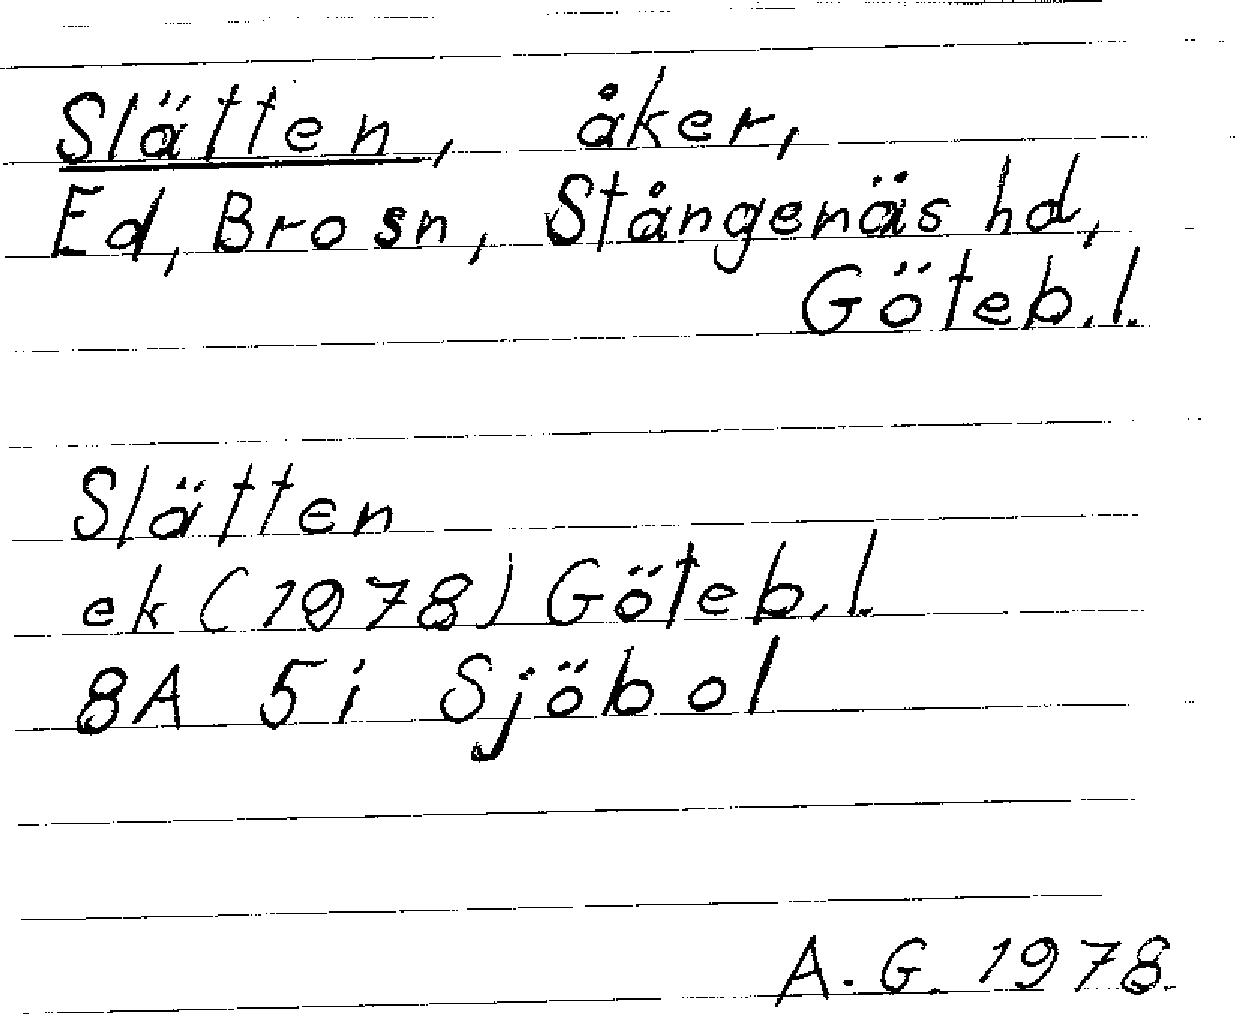 Slätten, åker,
Ed, Bro sn, Stångenäs hd,
Göteb. l.
Slätten
ek (1978) Göteb. l.
8A 5i Sjöbol
A. G. 1978.